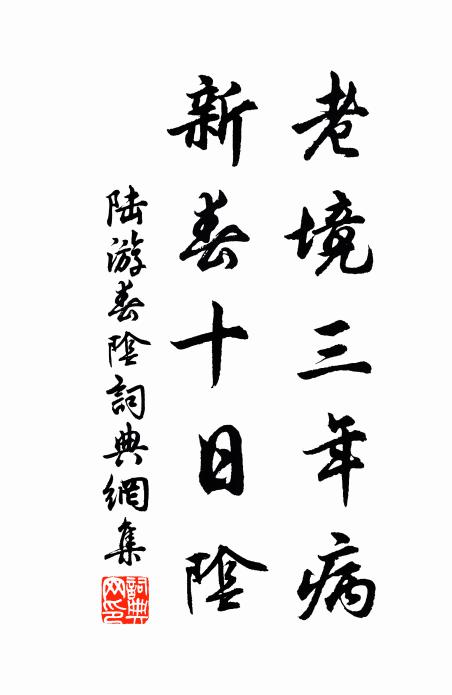 老境三年病
新春十日陰
陸游春陰詞典網集
詞典網印